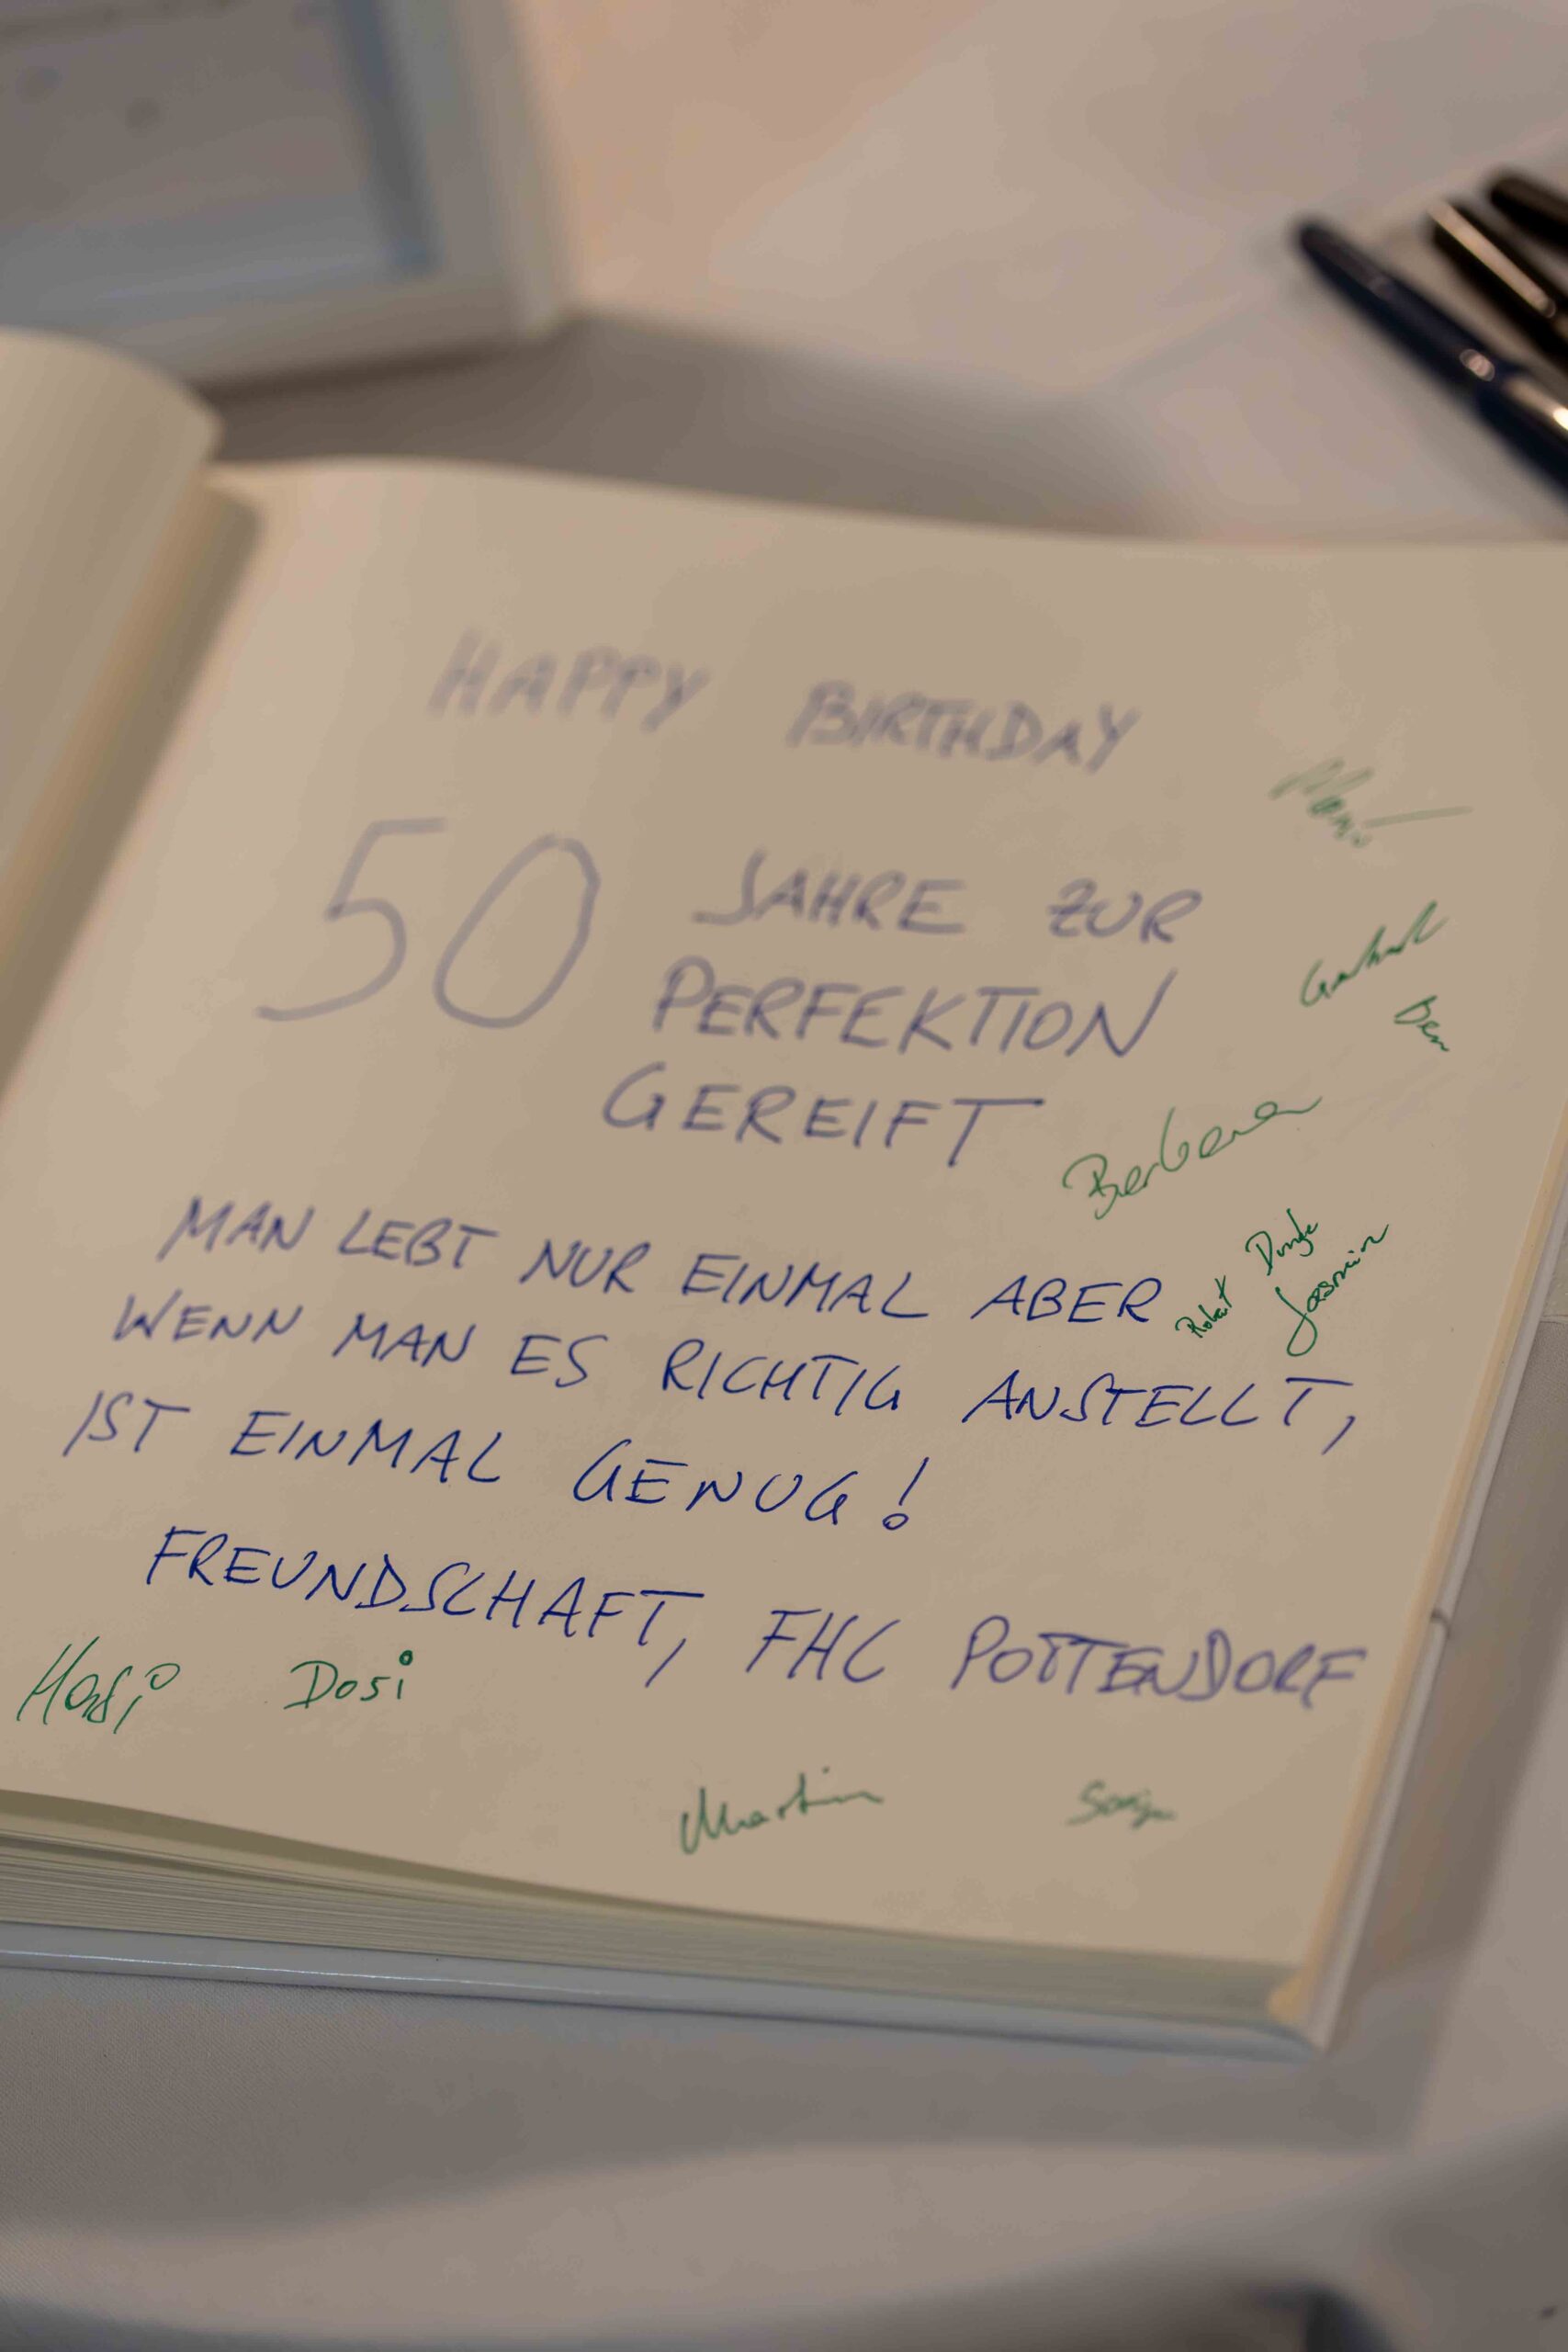 HAPPY BIRTHDAY
50 JAHRE ZUR
PERFEKTION
GEREIFT
Barbara
MAN LEBT NUR EINMAL ABER
Robert
Jasmin
WENN MAN ES RICHTIG ANSTELLT,
IST EINMAL GENUG!
FREUNDSCHAFT, FHC POTTENDORF
Dosi
Martin